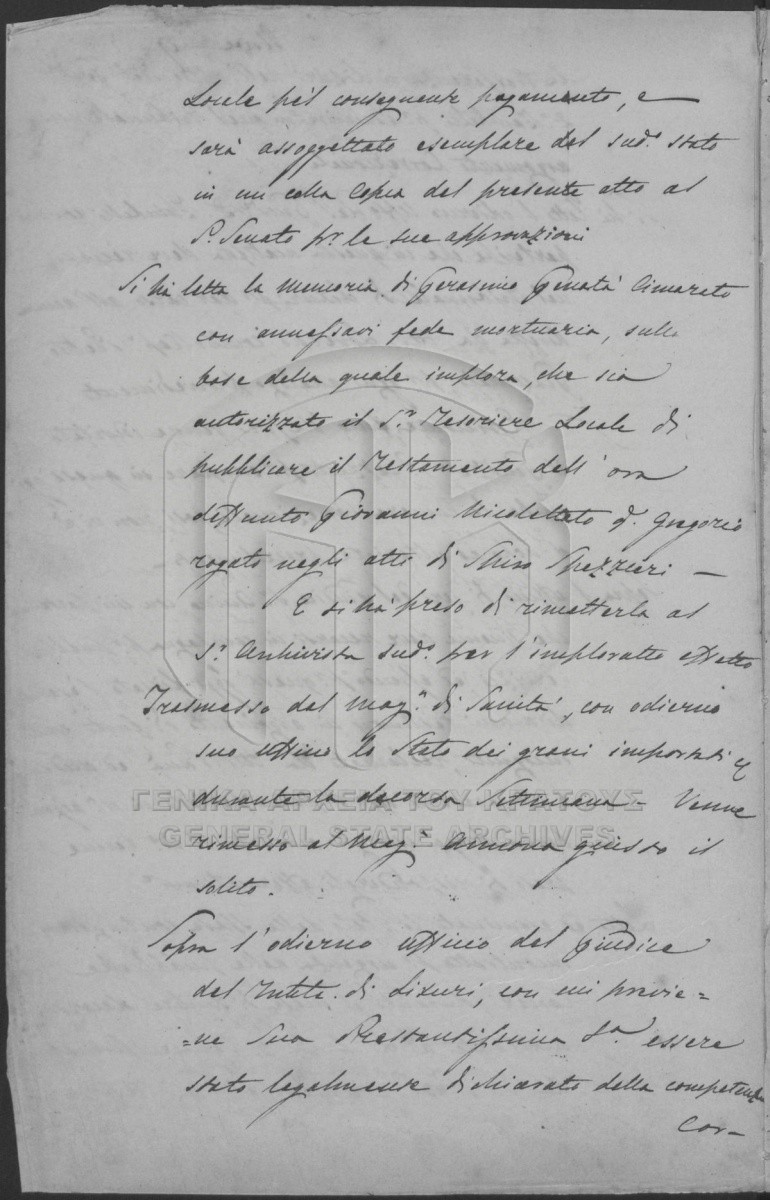 Locale pèl conseguente pagamento, e
sarà assoggettato esemplare del sud.º stato
in un colla Copia del presente atto al
S.º Senato pr. le sue approvazioni
Si hà letta la memoria di Gerasimo Genatà Cimareto
con annessavi fede mortuaria, sulla
base della quale implora, che sia
autorizzato il S.r Tesoriere Locale di
pubblicare il Testamento dell' ora
deffunto Giovanni Nicolettato q. Gregorio
rogato negli atti di Spiro Spezzieri —
E si hà preso di rimetterla al
S.r Archivista sud.º per l'imploratto effetto
Trasmesso dal Mag.º di Sanità, con odierno
suo uffizio lo Stato dei grani importati
durante la decorsa Settimana — Venne
ΓΕΝΙΚΑ ΑΡΧΕΙΑ ΤΟΥ ΚΡΑΤΟΥΣ
GENERAL STATE ARCHIVES
rimesso al Mag.º Annona giusto il
solito.
Sopra l'odierno uffizio del Giudice
del di Lixuri, con cui previe=
=ne Sua Prestantissima S.a essere
stato legalmente dichiarato della competenza
Cor—